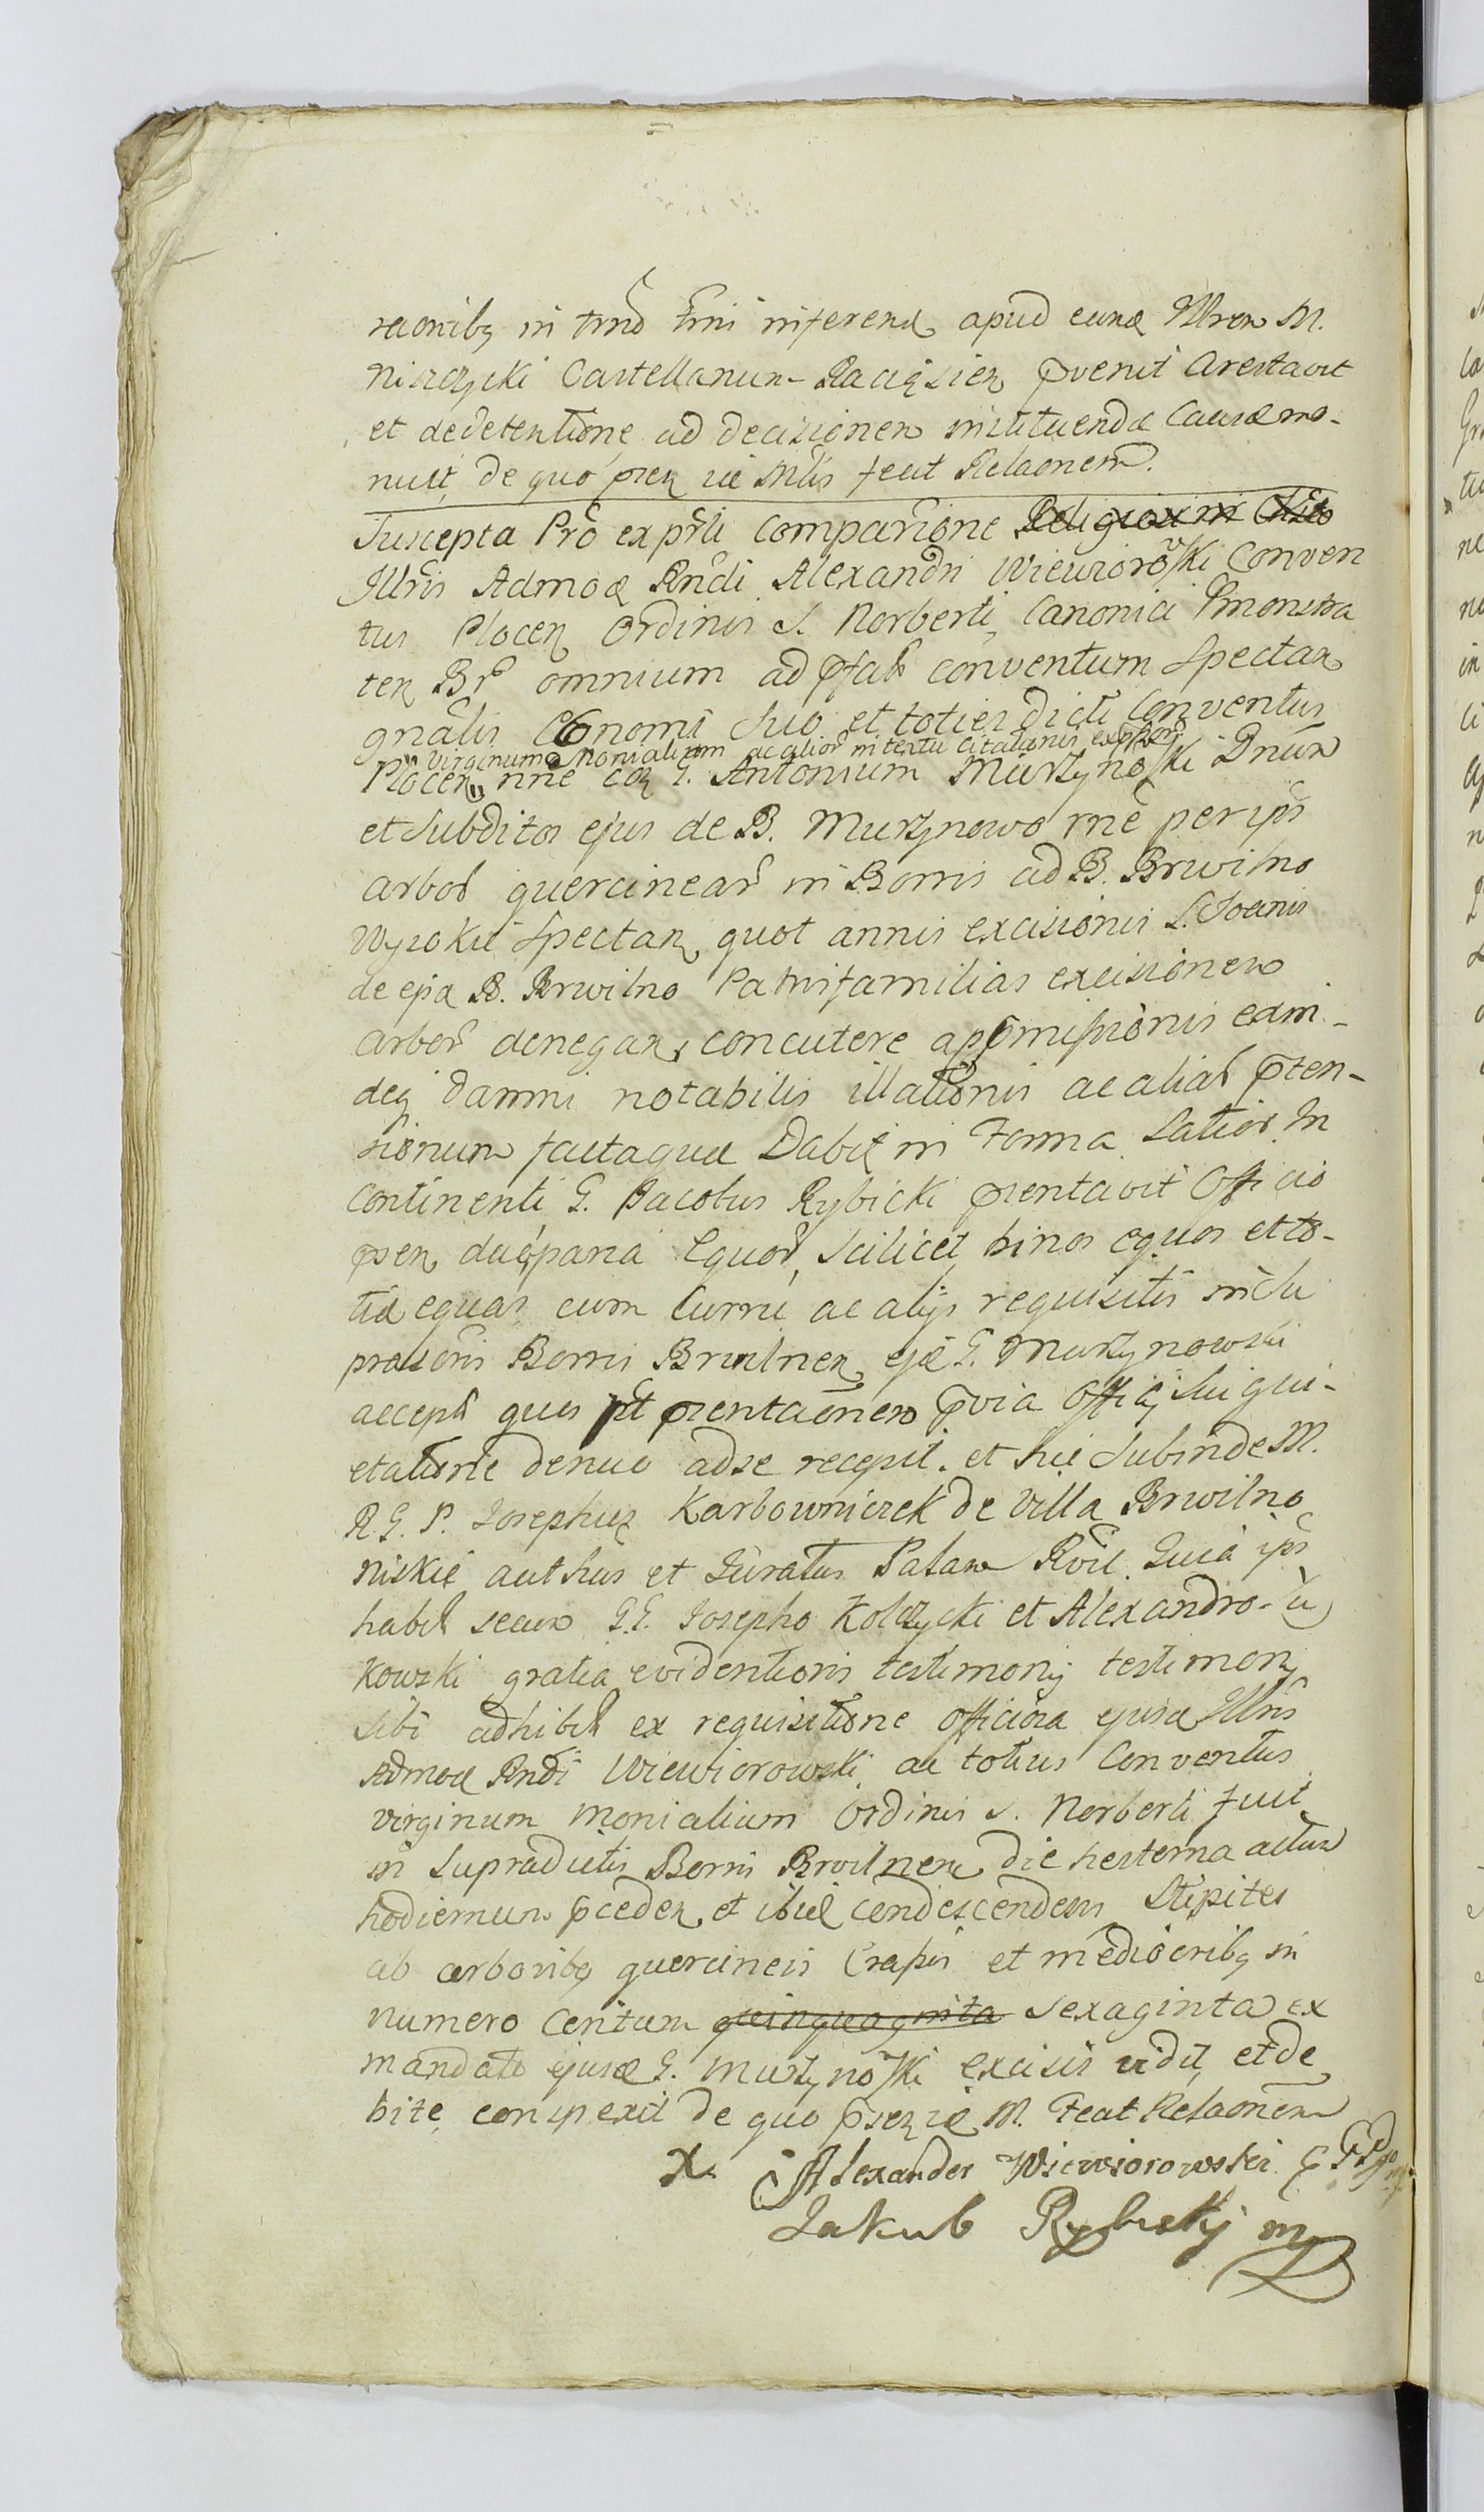 racionibq in tmo tmi inferend apud eund Illren M.
Niszczycki Castellanum Raciązien pvenit Arestavit
et dedetentione ad decisionem instituendæ Causæ mo-
nuit, de quo præn rie Mlis fecit Relaonem.
Suscepta Pro ex prli Comparione Religiosi in Chto
Illris Admod Rndi Alexandri Wiewioroski Conven
tus Plocen Ordinis S. Norberti Canonici Pmonstra
ten Br omnium ad pfat Conventum Spectan
gnalis Œconomi Suo et toties dicti Conventus
virginum Monialium ac alior intentu Citationis expsor
Plocen nne con G. Antonium Murzynoski Dnum
et Subditos ejus de B. Murzynowo rne per ips
arbor quercinear in Borris ad B. Brwilno
Wysokie Spectan quot annis excisionis S. Joanis
de ejd B. Brwilno Patrisfamilias excisionem
arbor denegan concutere appmissionis eam-
deq damni notabilis illationis ac aliar pten-
sionum factaque Dabit in Forma Latior. In
Continenti G. Jacobus Rybicki præntavit Officio
præn duo paria Equor, Scilicet binos equos et to-
tid equas cum Curru ac alijs requisitis in Su
prascris Borris Brwilnen ejd G. Murzynowski
accept quas pt præntaonem pvia Officij Sui qui-
etatione denuo ad se recepit. et hic Subinde M.
R. G. P. Josephus Karbowniczek de Villa Brwilno
niskie authus et Juratus Palam Rvit. Quia ips
habit secum G.G. Josepho Kolczycki et Alexandro Zu
kowski gratia evidentioris testimonij testimony
Sibi adhibit ex requisitione officiosa ejusd Illris
Admod Rndi Wiewiorowski ac totius Conventus
virginum Monialium Ordinis S. Norberti fuit
in Supradictis Borris Brwilnen die hesterna actum
hodiernum pceden et ibid condescendens Stipites
ab arboribq quercineis Crassis et mediocribq in
numero Centum quinquaginta Sexaginta ex
mandato ejusd G. Murzynoski excisis vidit, et de
bite conspexit de quo præn rie M. Fecit Relaonem
X Alexander Wiewiorowski
Jakub Rybicky mp